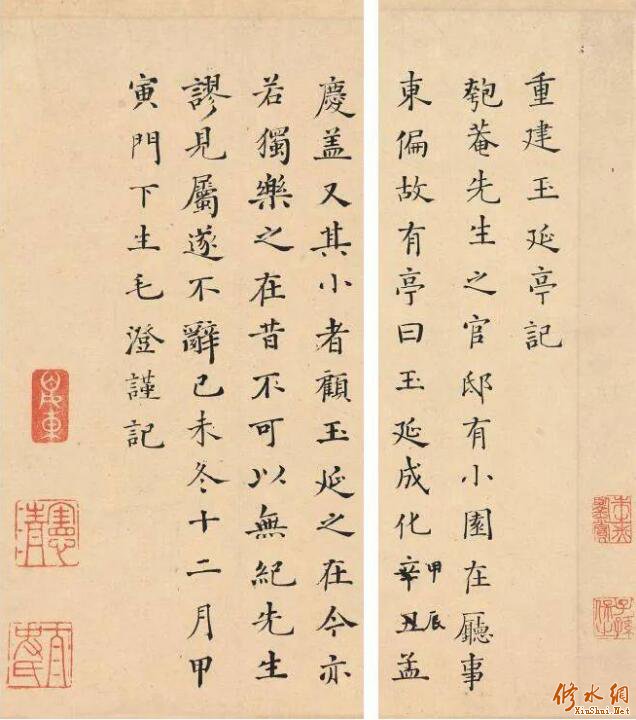 重建玉延亭記
匏菴先生之官邸有小園在廳事
東偏故有亭曰玉延成化辛丑甲辰孟
慶盖又其小者顧玉延之在今亦
若獨樂之在昔不可以無紀先生
謬見屬遂不辭己未冬十二月甲
寅門下生毛澄謹記
修水網
XiuShui.Net